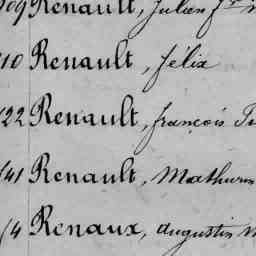 09 Renault, Julien f
10 Renault, félix
22 Renault, françois
41 Renault, Mathurin
4 Renaux, augustin